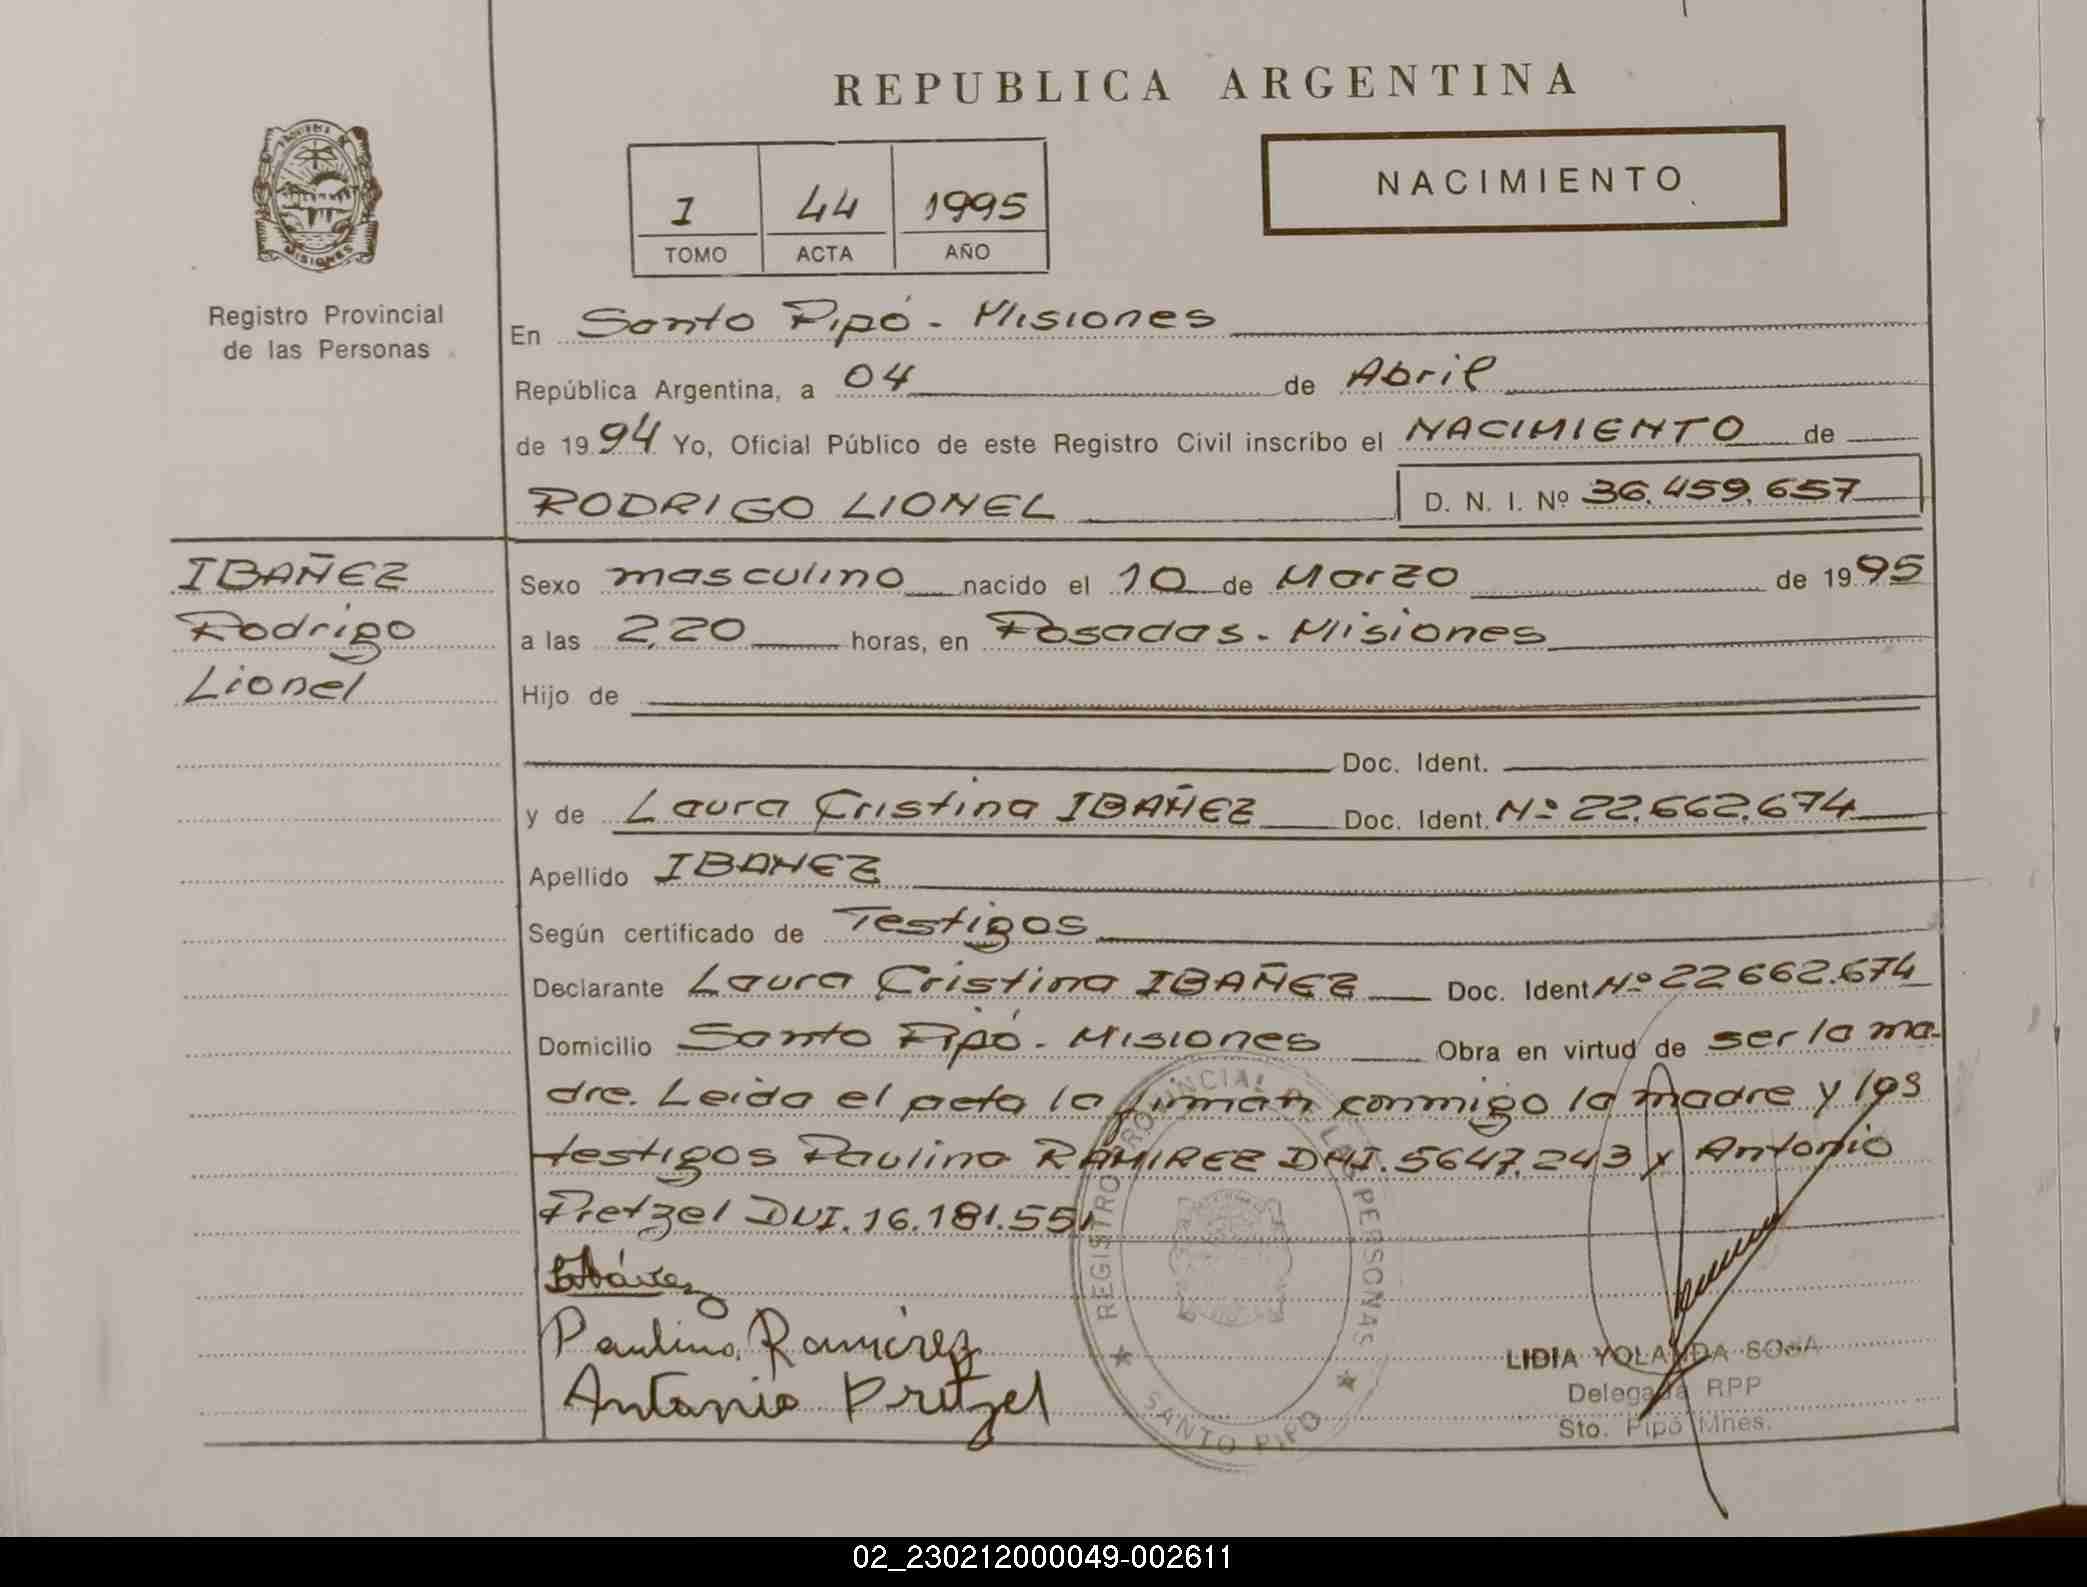 REPUBLICA ARGENTINA
NACIMIENTO
I 44 1995
TOMO ACTA AÑO
MISIONES
Registro Provincial
de las Personas
En Santo Pipó - Misiones
República Argentina, a 04 de Abril
de 1994 Yo, Oficial Público de este Registro Civil inscribo el NACIMIENTO de
RODRIGO LIONEL D. N. I. Nº 36.459.657
IBAÑEZ
Rodrigo
Lionel
Sexo masculino nacido el 10 de Marzo de 1995
a las 2,20 horas, en Posadas - Misiones
Hijo de
Doc. Ident.
y de Laura Cristina IBAÑEZ Doc. Ident. Nº 22.662.674
Apellido IBAÑEZ
Según certificado de Testigos
Declarante Laura Cristina IBAÑEZ Doc. Ident Nº 22662.674
Domicilio Santo Pipó - Misiones Obra en virtud de ser la ma-
dre. Leida el acta la firman conmigo la madre y los
testigos Paulino RAMIREZ DNI. 5647.243 y Antonio
Pretzel DNI. 16.181.551
Paulino Ramírez
Antonio Pretzel
REGISTRO PROVINCIAL DE LAS PERSONAS
SANTO PIPO
LIDIA YOLANDA SOSA
Delegada RPP
Sto. Pipó Mnes.
02_230212000049-002611